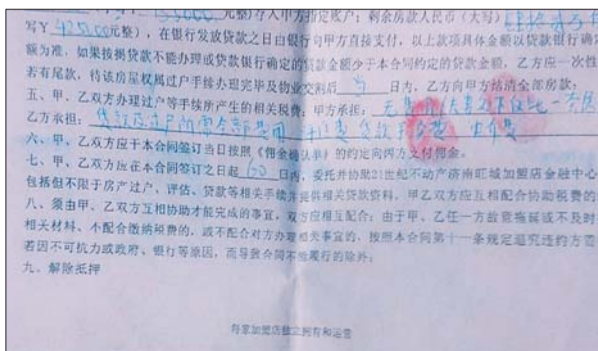 元整)存入甲方指定账户;剩余房款人民币(大写)
写Y 425000元整),在银行发放贷款之日由银行向甲方直接支付,以上款项具体金额以贷款银行确
额为准,如果按揭贷款不能办理或贷款银行确定的贷款金额少于本合同约定的贷款金额,乙方应一次性
若有尾款,待该房屋权属过户手续办理完毕及物业交割后 当 日内,乙方向甲方结清全部房款;
五、甲、乙双方办理过户等手续所产生的相关税费:甲方承担:
乙方承担: 中介费
六、甲、乙双方应于本合同签订当日按照《佣金确认单》的约定向丙方支付佣金。
七、甲、乙双方应在本合同签订之日起 60 日内,委托并协助21世纪不动产济南旺城加盟店金融中心
包括但不限于房产过户、评估、贷款等相关手续并提供相关贷款资料,甲乙双方应互相配合协助税费的
八、须由甲、乙双方互相协助才能完成的事宜,双方应相互配合;由于甲、乙任一方故意拖延或不及时
相关材料、不配合缴纳税费的,或不配合对方办理相关事宜的,按照本合同第十一条规定追究违约方责
若因不可抗力或政府、银行等原因,而导致合同不能履行的除外;
九、解除抵押
每家加盟店独立拥有和运营